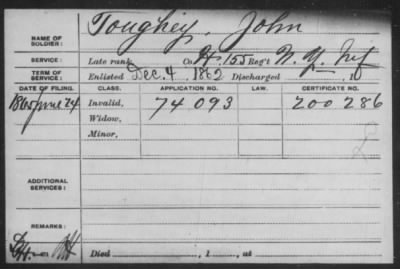 NAME OF SOLDIER: Toughey, John
SERVICE: Late rank, Co. H. 155 Reg't N. Y. Inf
TERM OF SERVICE: Enlisted Dec. 4, 1862 Discharged , 1
DATE OF FILING. CLASS. APPLICATION NO. LAW. CERTIFICATE NO.
1865 June 24 Invalid, 74 093 200 286
Widow,
Minor,
ADDITIONAL SERVICES:
REMARKS:
Died , 1 , at